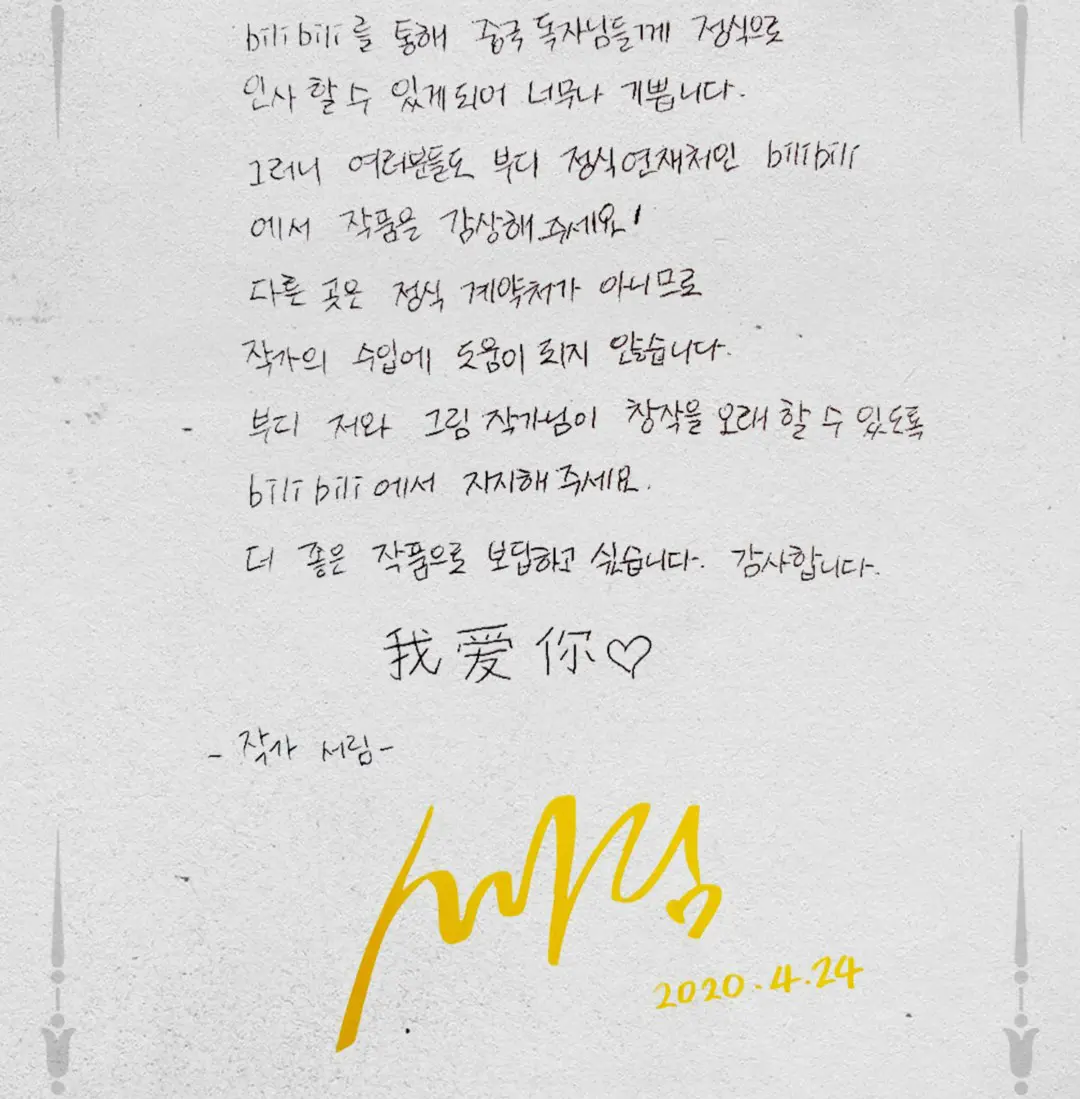 bilibili를 통해 중국 독자님들께 정식으로
인사 할 수 있게되어 너무나 기쁩니다.
그러니 여러분들도 부디 정식연재처인 bilibili
에서 작품을 감상해 주세요!
다른 곳은 정식 계약처가 아니므로
작가의 수입에 도움이 되지 않습니다.
부디 저와 그림 작가님이 창작을 오래 할 수 있도록
bilibili에서 지지해 주세요.
더 좋은 작품으로 보답하고 싶습니다. 감사합니다.
我爱你♡
- 작가 서림-
서림
2020.4.24